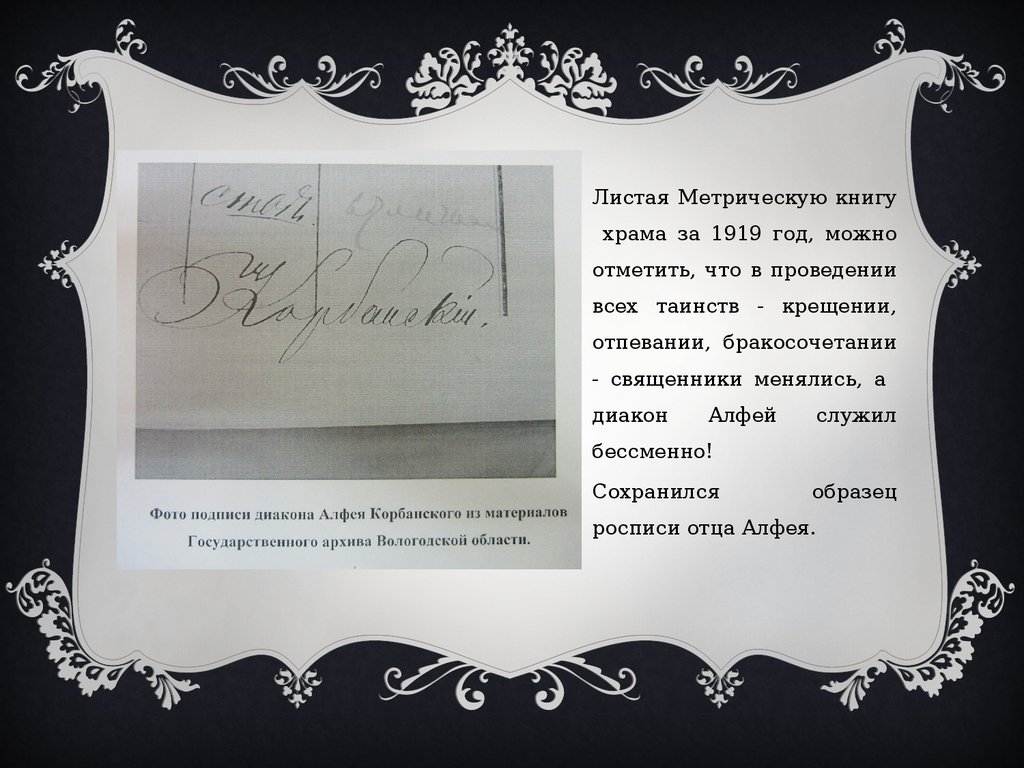 Корбанскій.
Фото подписи диакона Алфея Корбанского из материалов
Государственного архива Вологодской области.
Листая Метрическую книгу
храма за 1919 год, можно
отметить, что в проведении
всех таинств - крещении,
отпевании, бракосочетании
- священники менялись, а
диакон Алфей служил
бессменно!
Сохранился образец
росписи отца Алфея.